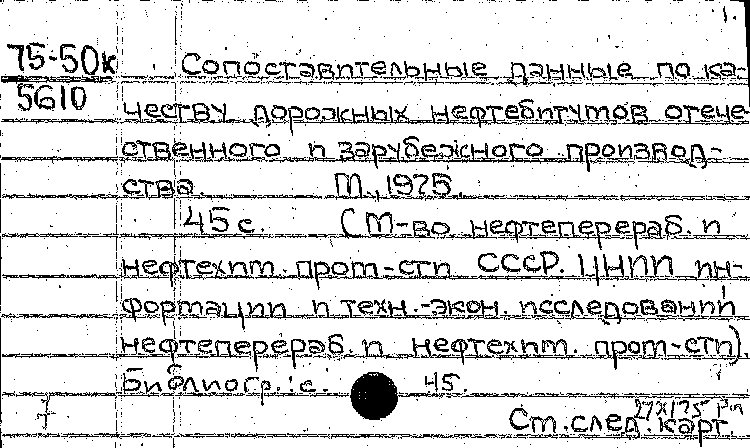 1.
75-50к
5610
Сопоставительные данные по ка-
честву дорожных нефтебитумов отече-
ственного и зарубежного производ-
ства. М., 1975.
45 с. (М-во нефтеперераб. и
нефтехим. пром-сти СССР. ЦНИИ ин-
формации и техн.-экон. исследований
нефтеперераб. и нефтехим. пром-сти).
Библиогр.: с. 45.
Ст. след. карт.